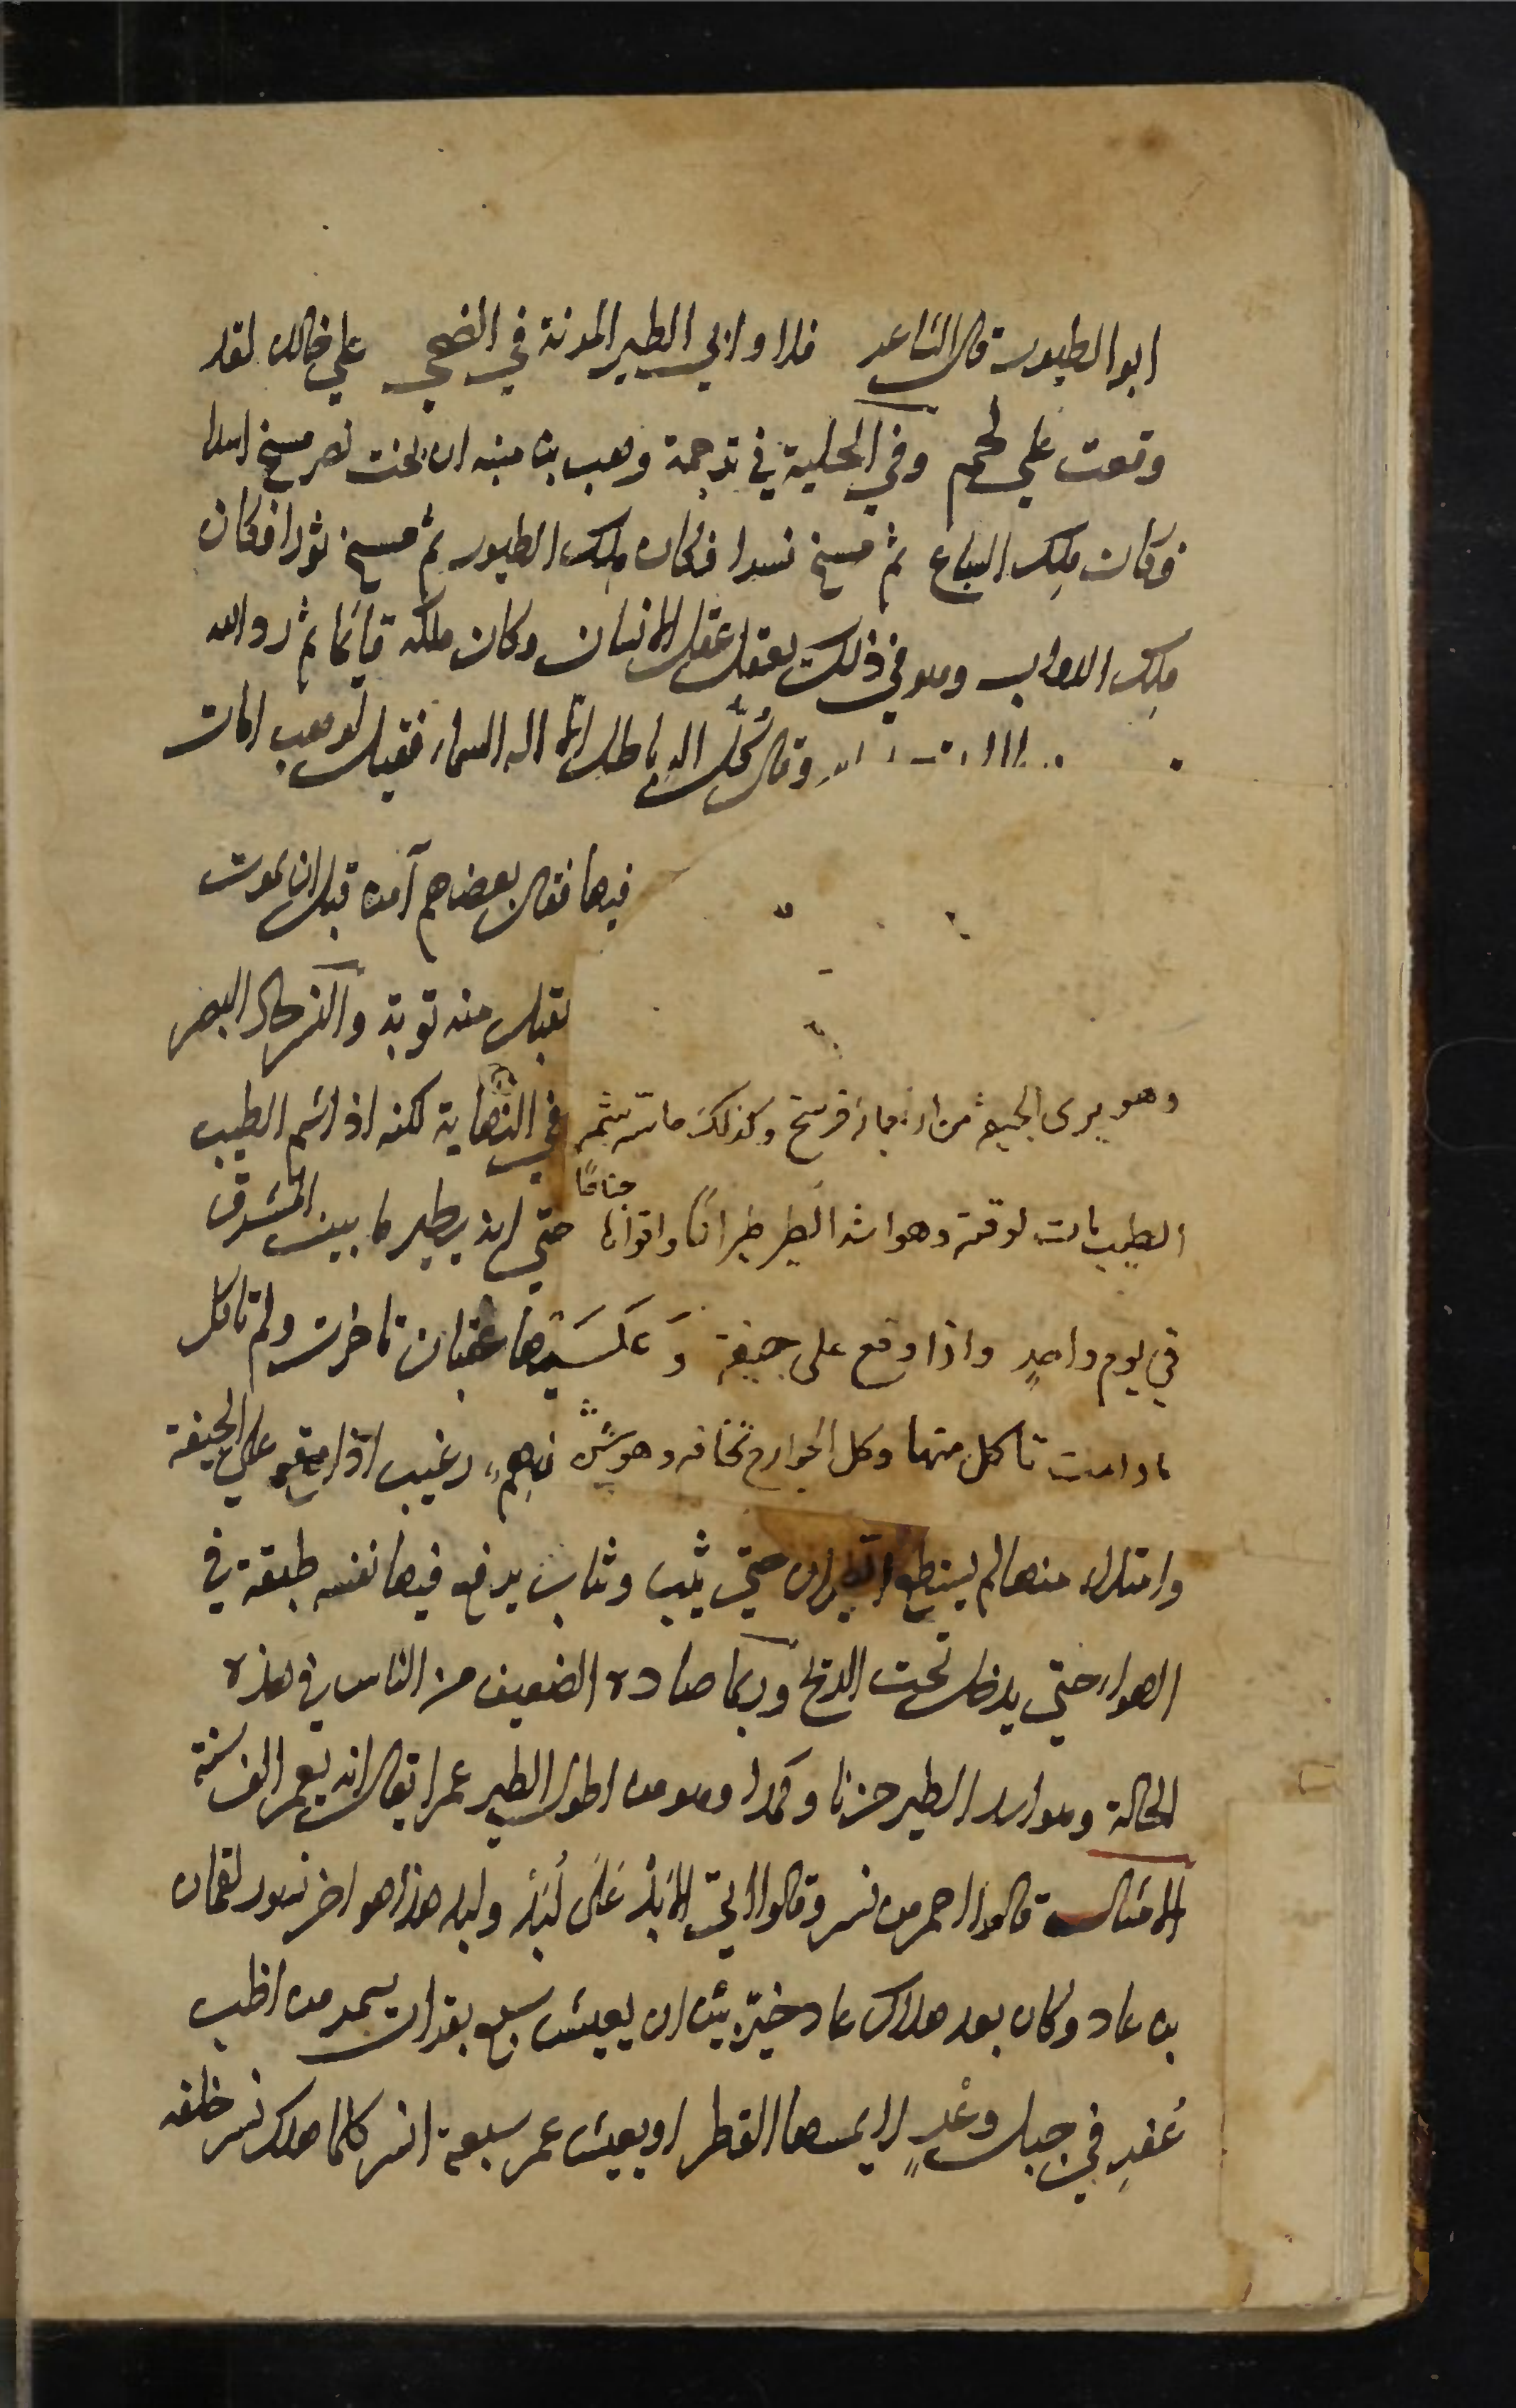 ابو الطيور قال الشاعر فلا وابي الطير المربة في الضحي علي خالد لقد
وقعت علي لحم وفي الحلية في ترجمة وهب بن منبه ان بخت نصر مسخ اسدا
فكان ملك السباع ثم مسخ نسرا فكان ملك الطيور ثم مسخ ثورا فكان
ملك الدواب وهو في ذلك يعقل عقل الانسان وكان ملكه قائما ثم رد الله
وقال كل اله باطل الا اله السماء فقيل لوهب امات
فيها فقال بعضهم آمن قبل ان يموت
يقبل منه توبة والنسر حاد البصر
وهو يرى الجيفة من اربعمائة فرسخ وكذلك حاسة شمه في النهاية لكنه اذا شم الطيب
الطيب مات لوقته وهو اشد الطير طيرانا واقواها جناحًا حتي انه يطير ما بين المشرق
في يوم واحدٍ واذا وقع على جيفة وَعليها عقبان تاخرت ولم تاكل
ما دامت تاكل منها وكل الجوارح تخافه وهو شره نهم رغيب اذا وقع علي الجيفة
وامتلاء منها لم يستطع الطيران حتي يثب وثبات يرفع فيها نفسه طبقة في
الهواء حتي يدخل تحت الريح وربما صاده الضعيف من الناس في هذه
الحالة وهو اشد الطير حزنا وكمدا وهو من اطول الطير عمرا يقال انه يعمر الف سنة
الامثال قالوا اعمر من نسر وقالوا اتي الابد عَلَى لُبَد ولبد هذا هو اخر نسور لقمان
بن عاد وكان بعد هلاك عاد خيّر بين ان يعيش سبع بقرات سمر من اظب
عُفرِ في جبل وعْرٍ لا يمسها القطر او يعيش عمر سبعة انسر كلما هلك نسر خلفه